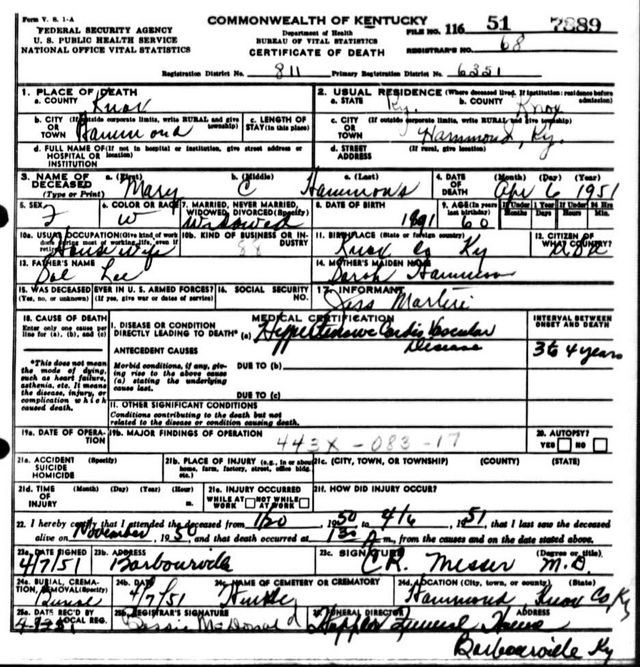 Form V. S. 1-A
FEDERAL SECURITY AGENCY
U. S. PUBLIC HEALTH SERVICE
NATIONAL OFFICE VITAL STATISTICS
COMMONWEALTH OF KENTUCKY
Department of Health
BUREAU OF VITAL STATISTICS
CERTIFICATE OF DEATH
FILE NO. 116 51 7889
REGISTRAR'S NO. 68
Registration District No. 811 Primary Registration District No. 6351
1. PLACE OF DEATH
a. COUNTY Knox
2. USUAL RESIDENCE (Where deceased lived. If institution: residence before admission)
a. STATE Ky. b. COUNTY Knox
b. CITY (If outside corporate limits, write RURAL and give township) OR TOWN Hammond
c. LENGTH OF STAY (in this place)
c. CITY (If outside corporate limits, write RURAL and give township) OR TOWN Hammond, Ky.
d. FULL NAME OF (If not in hospital or institution, give street address or location) HOSPITAL OR INSTITUTION
d. STREET ADDRESS (If rural, give location)
3. NAME OF DECEASED (Type or Print) a. (First) Mary b. (Middle) C c. (Last) Hammons
4. DATE OF DEATH (Month) (Day) (Year) Apr 6 1951
5. SEX F
6. COLOR OR RACE W
7. MARRIED, NEVER MARRIED, WIDOWED, DIVORCED (Specify) Widowed
8. DATE OF BIRTH 1891
9. AGE (In years last birthday) 60
If Under 1 Year Months Days If Under 24 Hrs Hours Min.
10a. USUAL OCCUPATION (Give kind of work done during most of working life, even if retired) Housewife
10b. KIND OF BUSINESS OR INDUSTRY 88
11. BIRTHPLACE (State or foreign country) Knox Co Ky
12. CITIZEN OF WHAT COUNTRY?
13. FATHER'S NAME Lee
14. MOTHER'S MAIDEN NAME
15. WAS DECEASED EVER IN U. S. ARMED FORCES? (Yes, no, or unknown) (If yes, give war or dates of service)
16. SOCIAL SECURITY NO.
17. INFORMANT
18. CAUSE OF DEATH
Enter only one cause per line for (a), (b), and (c)
*This does not mean the mode of dying, such as heart failure, asthenia, etc. It means the disease, injury, or complication which caused death.
MEDICAL CERTIFICATION
I. DISEASE OR CONDITION DIRECTLY LEADING TO DEATH* (a) Hypertensive Cardio Vascular
Disease
INTERVAL BETWEEN ONSET AND DEATH
3 to 4 years
ANTECEDENT CAUSES
Morbid conditions, if any, giving rise to the above cause (a) stating the underlying cause last.
DUE TO (b)
DUE TO (c)
II. OTHER SIGNIFICANT CONDITIONS
Conditions contributing to the death but not related to the disease or condition causing death.
19a. DATE OF OPERATION
19b. MAJOR FINDINGS OF OPERATION
443X-083-17
20. AUTOPSY?
YES NO
21a. ACCIDENT SUICIDE HOMICIDE (Specify)
21b. PLACE OF INJURY (e.g., in or about home, farm, factory, street, office bldg., etc.)
21c. (CITY, TOWN, OR TOWNSHIP) (COUNTY) (STATE)
21d. TIME OF INJURY (Month) (Day) (Year) (Hour) m.
21e. INJURY OCCURRED WHILE AT WORK NOT WHILE AT WORK
21f. HOW DID INJURY OCCUR?
22. I hereby certify that I attended the deceased from 1/20 1950 to 4/6, 1951, that I last saw the deceased
alive on November, 1950, and that death occurred at m., from the causes and on the date stated above.
23a. DATE SIGNED 4/7/51
23b. ADDRESS Barbourville
23c. SIGNATURE C.R. Messer (Degree or title) M.D.
24a. BURIAL, CREMATION, REMOVAL (Specify)
24b. DATE 4/7/51
24c. NAME OF CEMETERY OR CREMATORY
24d. LOCATION (City, town, or county) (State) Hammond Knox Co, Ky
25a. DATE REC'D BY LOCAL REG.
25b. REGISTRAR'S SIGNATURE Bessie McDonald
26. FUNERAL DIRECTOR Funeral Home
ADDRESS
Barbourville Ky